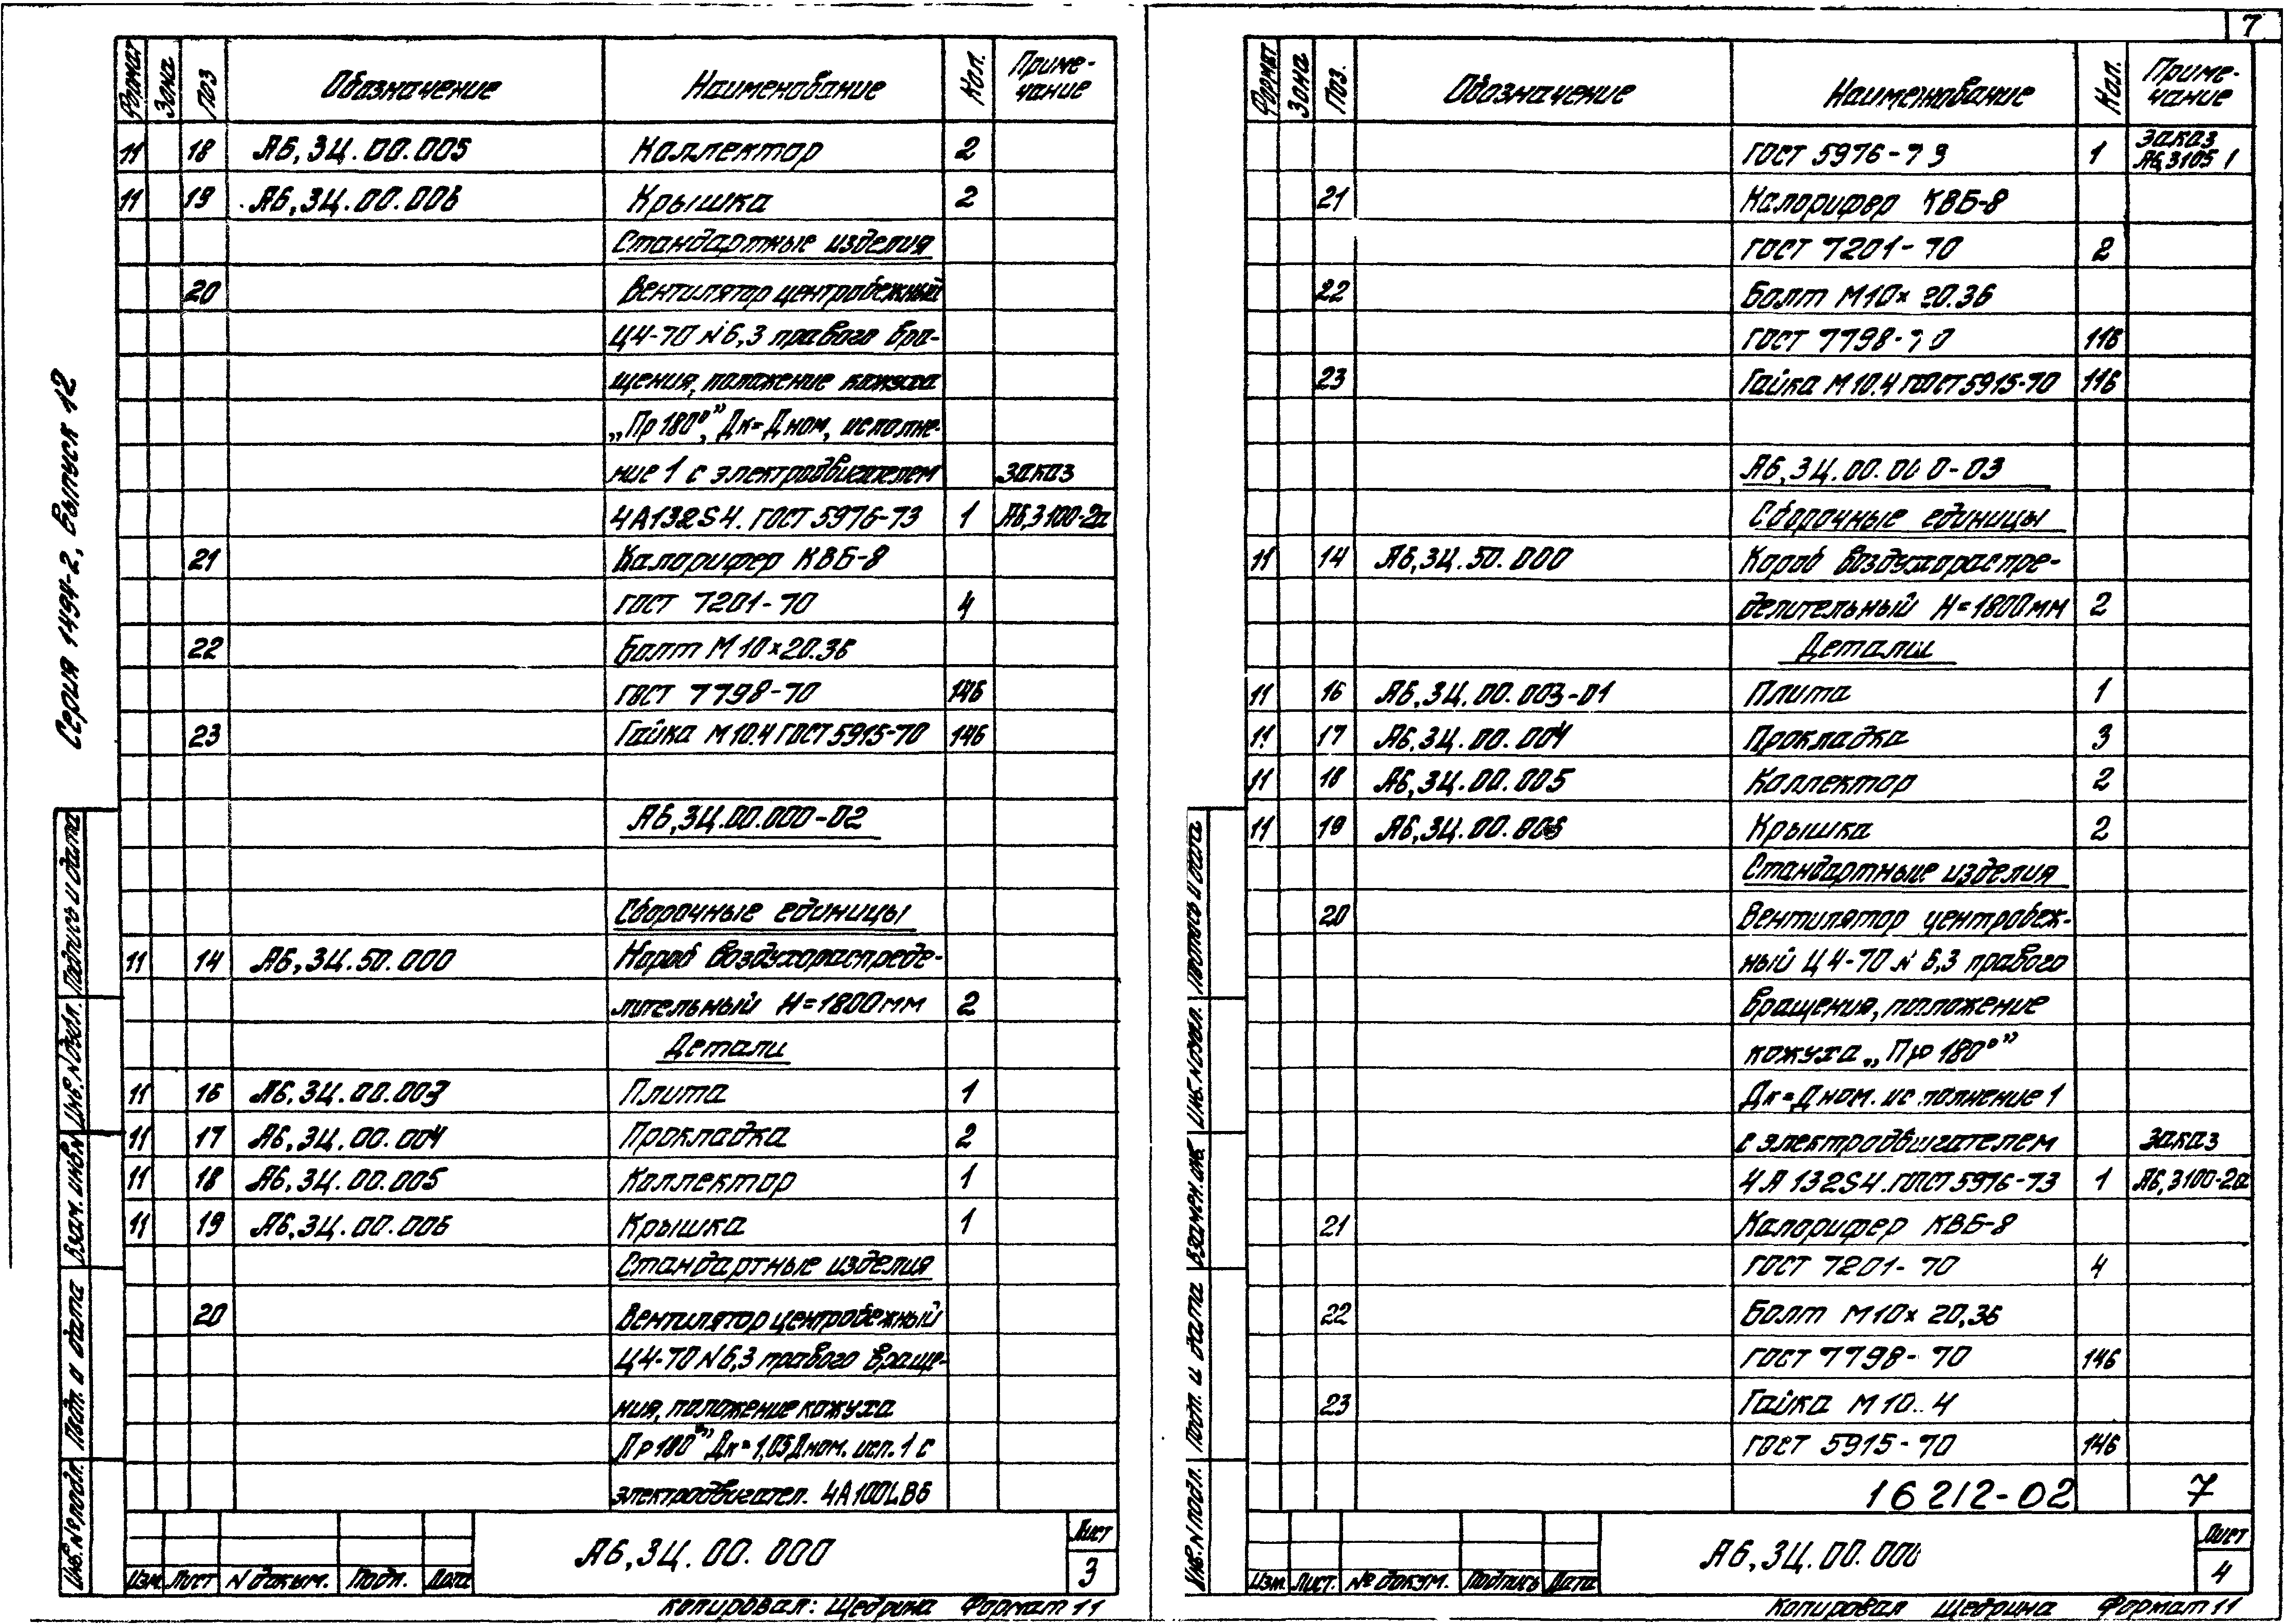 7
Серия 1494-2, Выпуск 12
Формат Зона Поз Обозначение Наименование Кол. Приме-
чание
11 18 А6,3Ц.00.005 Коллектор 2
11 19 А6,3Ц.00.006 Крышка 2
Стандартные изделия
20 Вентилятор центробежный
Ц4-70 N6,3 правого вра-
щения, положение кожуха
„Пр 180°”, Дк=Дном, исполне-
ние 1 с электродвигателем заказ
4А132S4. ГОСТ 5976-73 1 А6,3100-2а
21 Калорифер КВБ-8
ГОСТ 7201-70 4
22 Болт М10×20.36
ГОСТ 7798-70 146
23 Гайка М10.4 ГОСТ 5915-70 146
А6,3Ц.00.000-02
Сборочные единицы
11 14 А6,3Ц.50.000 Короб воздухораспреде-
лительный Н=1800мм 2
Детали
11 16 А6,3Ц.00.003 Плита 1
11 17 А6,3Ц.00.004 Прокладка 2
11 18 А6,3Ц.00.005 Коллектор 1
11 19 А6,3Ц.00.006 Крышка 1
Стандартные изделия
20 Вентилятор центробежный
Ц4-70 N6,3 правого враще-
ния, положение кожуха
Пр180°” Дк=1,05Дном. исп. 1 с
электродвигател. 4А100LB6
А6,3Ц.00.000
Лист
3
Изм. Лист N докум. Подп. Дата
Копировал: Щедрина Формат 11
Подпись и дата
Инв. N дубл.
Взам. инв. N
Подп. и дата
Инв. № подл.
Формат Зона Поз. Обозначение Наименование Кол. Приме-
чание
ГОСТ 5976-73 1 Заказ
А6,3105 1
21 Калорифер КВБ-8
ГОСТ 7201-70 2
22 Болт М10×20.36
ГОСТ 7798-70 116
23 Гайка М10.4 ГОСТ 5915-70 116
А6,3Ц.00.000-03
Сборочные единицы
11 14 А6,3Ц.50.000 Короб воздухораспре-
делительный Н=1800мм 2
Детали
11 16 А6,3Ц.00.003-01 Плита 1
11 17 А6,3Ц.00.004 Прокладка 3
11 18 А6,3Ц.00.005 Коллектор 2
11 19 А6,3Ц.00.006 Крышка 2
Стандартные изделия
20 Вентилятор центробеж-
ный Ц4-70 N 6,3 правого
вращения, положение
кожуха „Пр 180°”
Дк=Дном. исполнение 1
с электродвигателем Заказ
4А132S4. ГОСТ 5976-73 1 А6,3100-2а
21 Калорифер КВБ-8
ГОСТ 7201-70 4
22 Болт М10×20,36
ГОСТ 7798-70 146
23 Гайка М10.4
ГОСТ 5915-70 146
16212-02 7
А6,3Ц.00.000
Лист
4
Изм. Лист. № докум. Подпись Дата
Копировал Щедрина Формат 11
Подпись и дата
Инв. N подл.
Подп. и дата